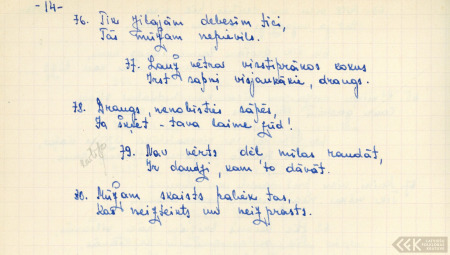 -14-
76. Tic zilajām debesīm tici,
Tās mūžam nepievils.
77. Lauž vētras visstiprākos kokus
Irst sapņi visjaukākie, draugs.
78. Draugs, nenobīsties sāpēs,
Ja šķiet - tava laime zūd!
79. Nav vērts dēļ mīlas raudāt,
Ir daudzi, kam to dāvāt.
80. Mūžam skaists paliek tas,
Kas neizteikts un neizprasts.